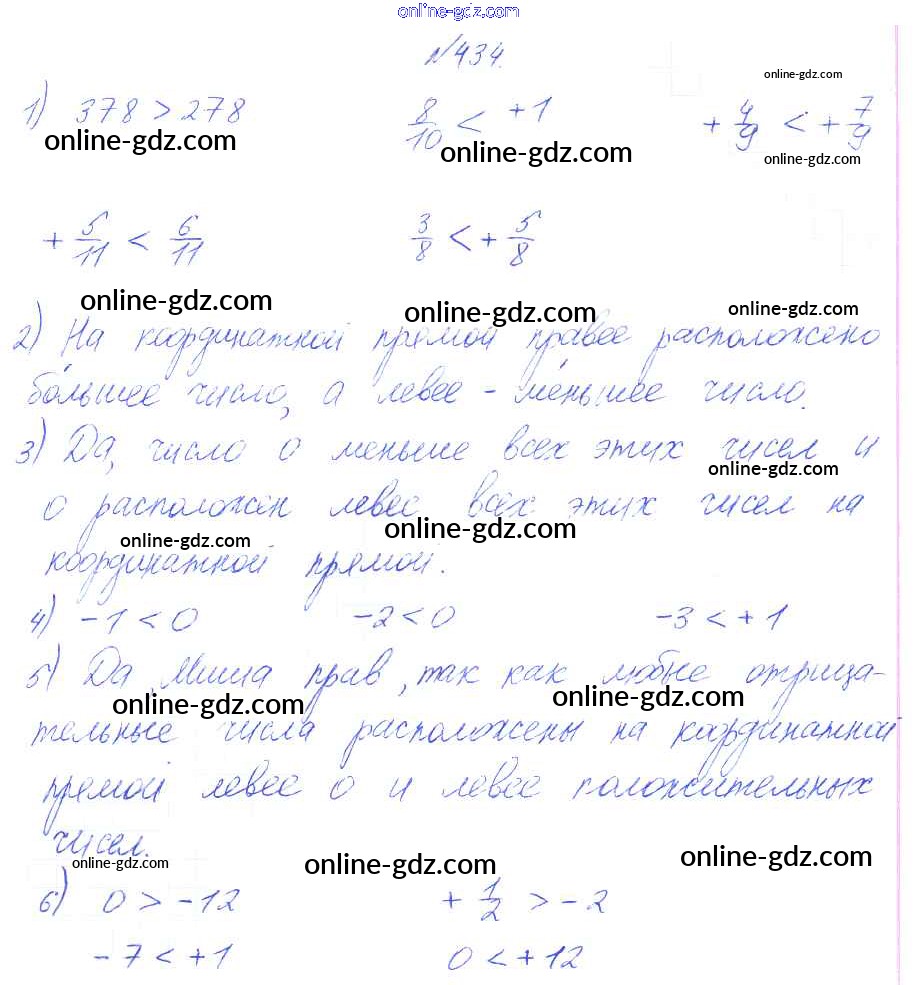 online-gdz.com
№434.
online-gdz.com
1) 378 > 278 8/10 < +1 +4/9 < +7/9
online-gdz.com online-gdz.com online-gdz.com
+5/11 < 6/11 3/8 < +5/8
online-gdz.com online-gdz.com online-gdz.com
2) На координатной прямой правее расположено
бо́льшее число, а левее - ме́ньшее число.
3) Да, число 0 меньше всех этих чисел и
online-gdz.com
0 расположен левее всех этих чисел на
online-gdz.com online-gdz.com
координатной прямой.
4) -1 < 0 -2 < 0 -3 < +1
5) Да Миша прав, так как любые отрица-
online-gdz.com online-gdz.com
тельные числа расположены на координатной
прямой левее 0 и левее положительных
чисел.
online-gdz.com online-gdz.com online-gdz.com
6) 0 > -12 +1/2 > -2
-7 < +1 0 < +12